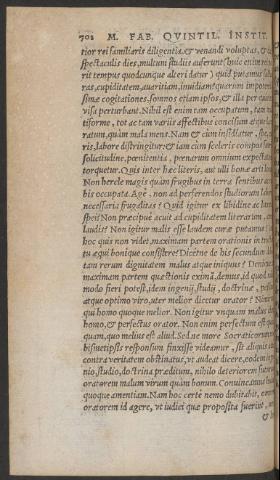 702 M. FAB. QVINTIL. INSTIT.
tior rei familiaris diligentia, & uenandi uoluptas, &
spectaculis dies, multum studiis auferunt (huic enim rei
rit tempus quodcunque alteri datur) quid putamus
ras, cupiditatem, auaritiam, inuidiam? quarum impoten
ssimæ cogitationes, somnos etiam ipsos, & illa per
uisa perturbant. Nihil est enim tam occupatum, tam
tiforme, tot ac tam variis affectibus concisum atque
ratum, quàm mala mens. Nam & cùm insidiatur,
ris, labore distringitur: & iam cùm sceleris compos
solicitudine, pœnitentia, pœnarum omnium expecta
torquetur. Quis inter hæc literis, aut ulli bonæ arti
Non hercle magis quàm frugibus in terra sentibus
bis occupata. Age, non ad perferendos studiorum
necessaria frugalitas? Quid igitur ex libidine ac
spei? Non præcipuè acuit ad cupiditatem literarum,
laudis? Non igitur malis esse laudem curæ putamus?
hoc quis non videt, maximam partem orationis in
tu æqui bonique consistere? Dicétne de his secundum
tam rerum dignitatem malus atque iniquus? Denique
maximam partem quæstionis eximã, demus, id quod
modo fieri potest, idem ingenij, studij, doctrinæ,
atque optimo viro, uter melior dicetur orator? Nimirum
qui homo quoque melior. Non igitur vnquam malus
homo, & perfectus orator. Non enim perfectum est
quam, quo melius est aliud. Sed ne more Socraticorum
bismetipsis responsum finxisse videamur, sit aliquis
contra veritatem obstinatus, vt audeat dicere, eodem
nio, studio, doctrina præditum, nihilo deteriorem
oratorem malum virum quàm bonum. Conuincamus
quoque amentiam. Nam hoc certè nemo dubitabit,
orationem id agere, vt iudici quæ proposita fuerint
&